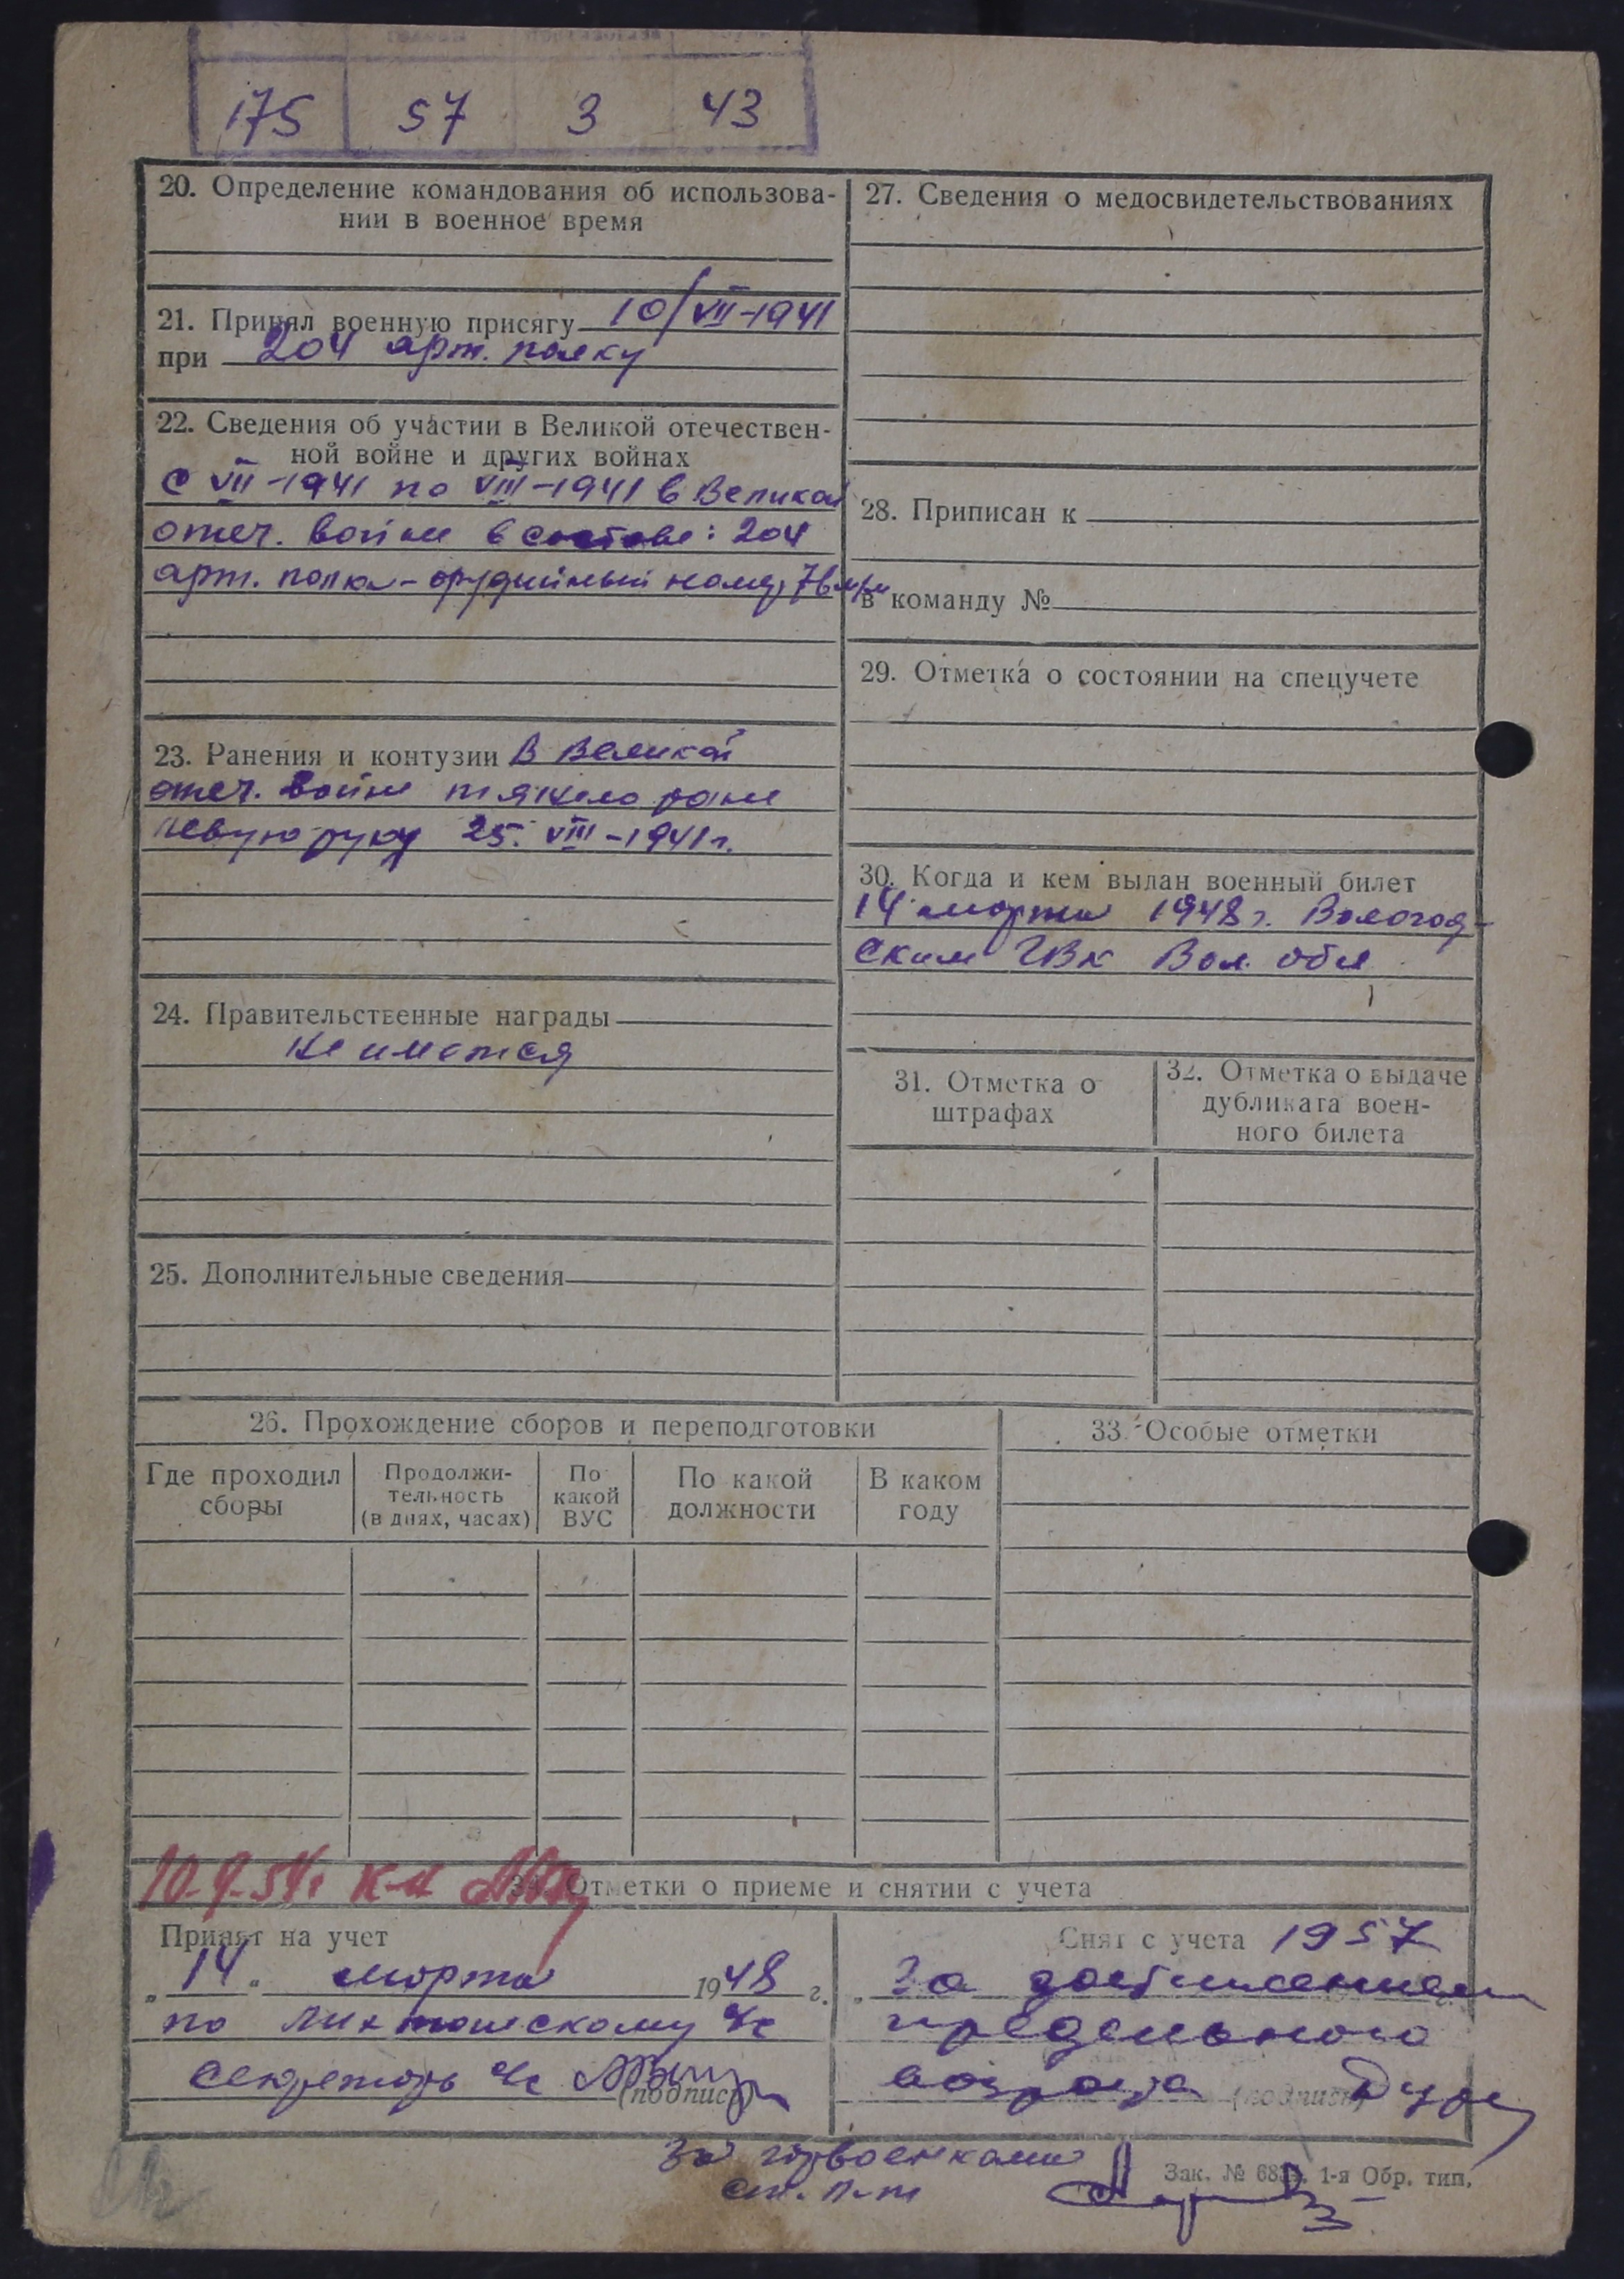 175 57 3 43
20. Определение командования об использова-
нии в военное время
21. Принял военную присягу 10/VII-1941
при 204 арт. полку
22. Сведения об участии в Великой отечествен-
ной войне и других войнах
С VII-1941 по VIII-1941 в Великой
отеч. войне в составе: 204
арт. полка - орудийный номер 76 м/м
23. Ранения и контузии В Великой
отеч. войне тяжело ране
левую руку 25. VIII-1941 г.
24. Правительственные награды
Не имется
25. Дополнительные сведения
27. Сведения о медосвидетельствованиях
28. Приписан к
в команду №
29. Отметка о состоянии на спецучете
30. Когда и кем выдан военный билет
14 марта 1948 г. Вологод-
ским ГВК Вол. обл
31. Отметка о
штрафах
32. Отметка о выдаче
дубликата воен-
ного билета
26. Прохождение сборов и переподготовки
Где проходил
сборы
Продолжи-
тельность
(в днях, часах)
По
какой
ВУС
По какой
должности
В каком
году
33. Особые отметки
34. Отметки о приеме и снятии с учета
Принят на учет
„14“ марта 1948 г.
по
секретарь
(подпись)
Снят с учета 1957
За достижением
предельного
возраста (подпись)
За горвоенкома
ст. л-т
Зак. № 1-я Обр. тип.